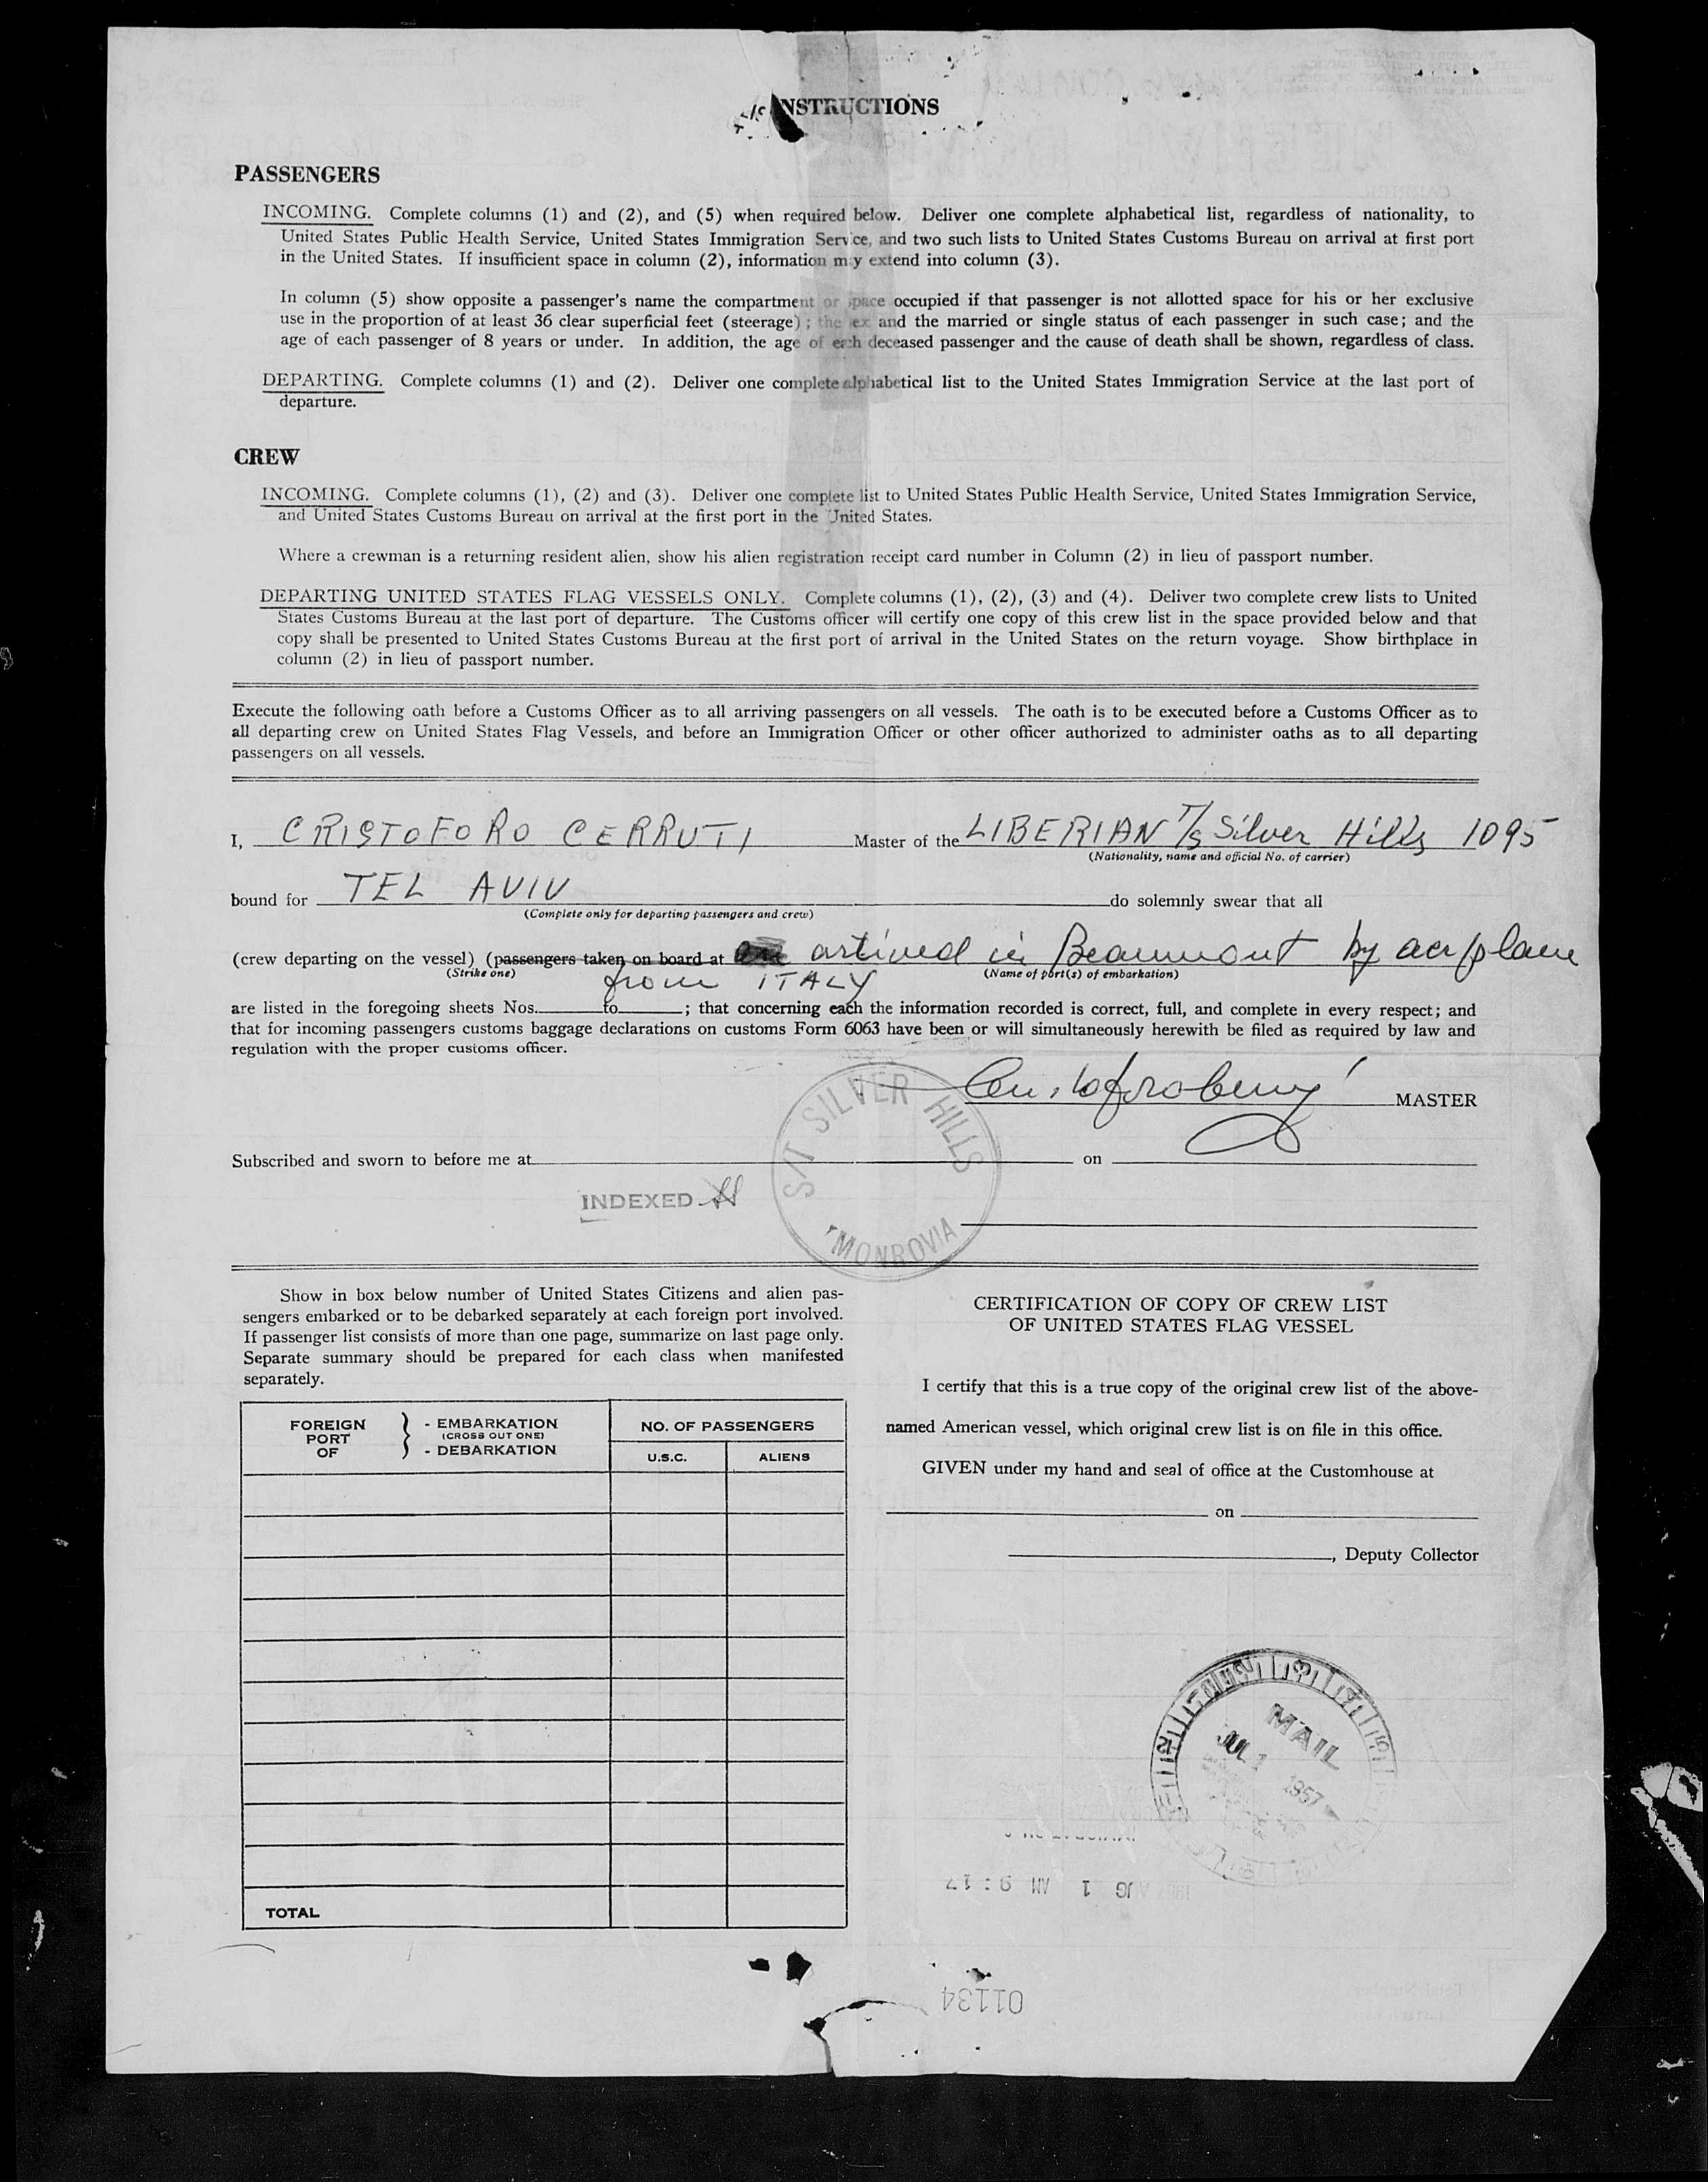 INSTRUCTIONS
PASSENGERS
INCOMING. Complete columns (1) and (2), and (5) when required below. Deliver one complete alphabetical list, regardless of nationality, to
United States Public Health Service, United States Immigration Service, and two such lists to United States Customs Bureau on arrival at first port
in the United States. If insufficient space in column (2), information may extend into column (3).
In column (5) show opposite a passenger's name the compartment or space occupied if that passenger is not allotted space for his or her exclusive
use in the proportion of at least 36 clear superficial feet (steerage); the sex and the married or single status of each passenger in such case; and the
age of each passenger of 8 years or under. In addition, the age of each deceased passenger and the cause of death shall be shown, regardless of class.
DEPARTING. Complete columns (1) and (2). Deliver one complete alphabetical list to the United States Immigration Service at the last port of
departure.
CREW
INCOMING. Complete columns (1), (2) and (3). Deliver one complete list to United States Public Health Service, United States Immigration Service,
and United States Customs Bureau on arrival at the first port in the United States.
Where a crewman is a returning resident alien, show his alien registration receipt card number in Column (2) in lieu of passport number.
DEPARTING UNITED STATES FLAG VESSELS ONLY. Complete columns (1), (2), (3) and (4). Deliver two complete crew lists to United
States Customs Bureau at the last port of departure. The Customs officer will certify one copy of this crew list in the space provided below and that
copy shall be presented to United States Customs Bureau at the first port of arrival in the United States on the return voyage. Show birthplace in
column (2) in lieu of passport number.
Execute the following oath before a Customs Officer as to all arriving passengers on all vessels. The oath is to be executed before a Customs Officer as to
all departing crew on United States Flag Vessels, and before an Immigration Officer or other officer authorized to administer oaths as to all departing
passengers on all vessels.
I, CRISTOFORO CERRUTI Master of the LIBERIAN T/S Silver Hills 1095
(Nationality, name and official No. of carrier)
bound for TEL AVIV do solemnly swear that all
(Complete only for departing passengers and crew)
(crew departing on the vessel) (passengers taken on board at arrived in Beaumont by aerplane
(Strike one) from ITALY (Name of port(s) of embarkation)
are listed in the foregoing sheets Nos. to ; that concerning each the information recorded is correct, full, and complete in every respect; and
that for incoming passengers customs baggage declarations on customs Form 6063 have been or will simultaneously herewith be filed as required by law and
regulation with the proper customs officer.
MASTER
S/T SILVER HILLS
MONROVIA
Subscribed and sworn to before me at on
INDEXED
Show in box below number of United States Citizens and alien pas-
sengers embarked or to be debarked separately at each foreign port involved.
If passenger list consists of more than one page, summarize on last page only.
Separate summary should be prepared for each class when manifested
separately.
FOREIGN PORT OF } - EMBARKATION (CROSS OUT ONE) - DEBARKATION
NO. OF PASSENGERS
U.S.C. ALIENS
TOTAL
CERTIFICATION OF COPY OF CREW LIST
OF UNITED STATES FLAG VESSEL
I certify that this is a true copy of the original crew list of the above-
named American vessel, which original crew list is on file in this office.
GIVEN under my hand and seal of office at the Customhouse at
on
, Deputy Collector
MAIL
JUL 1 1957
01134